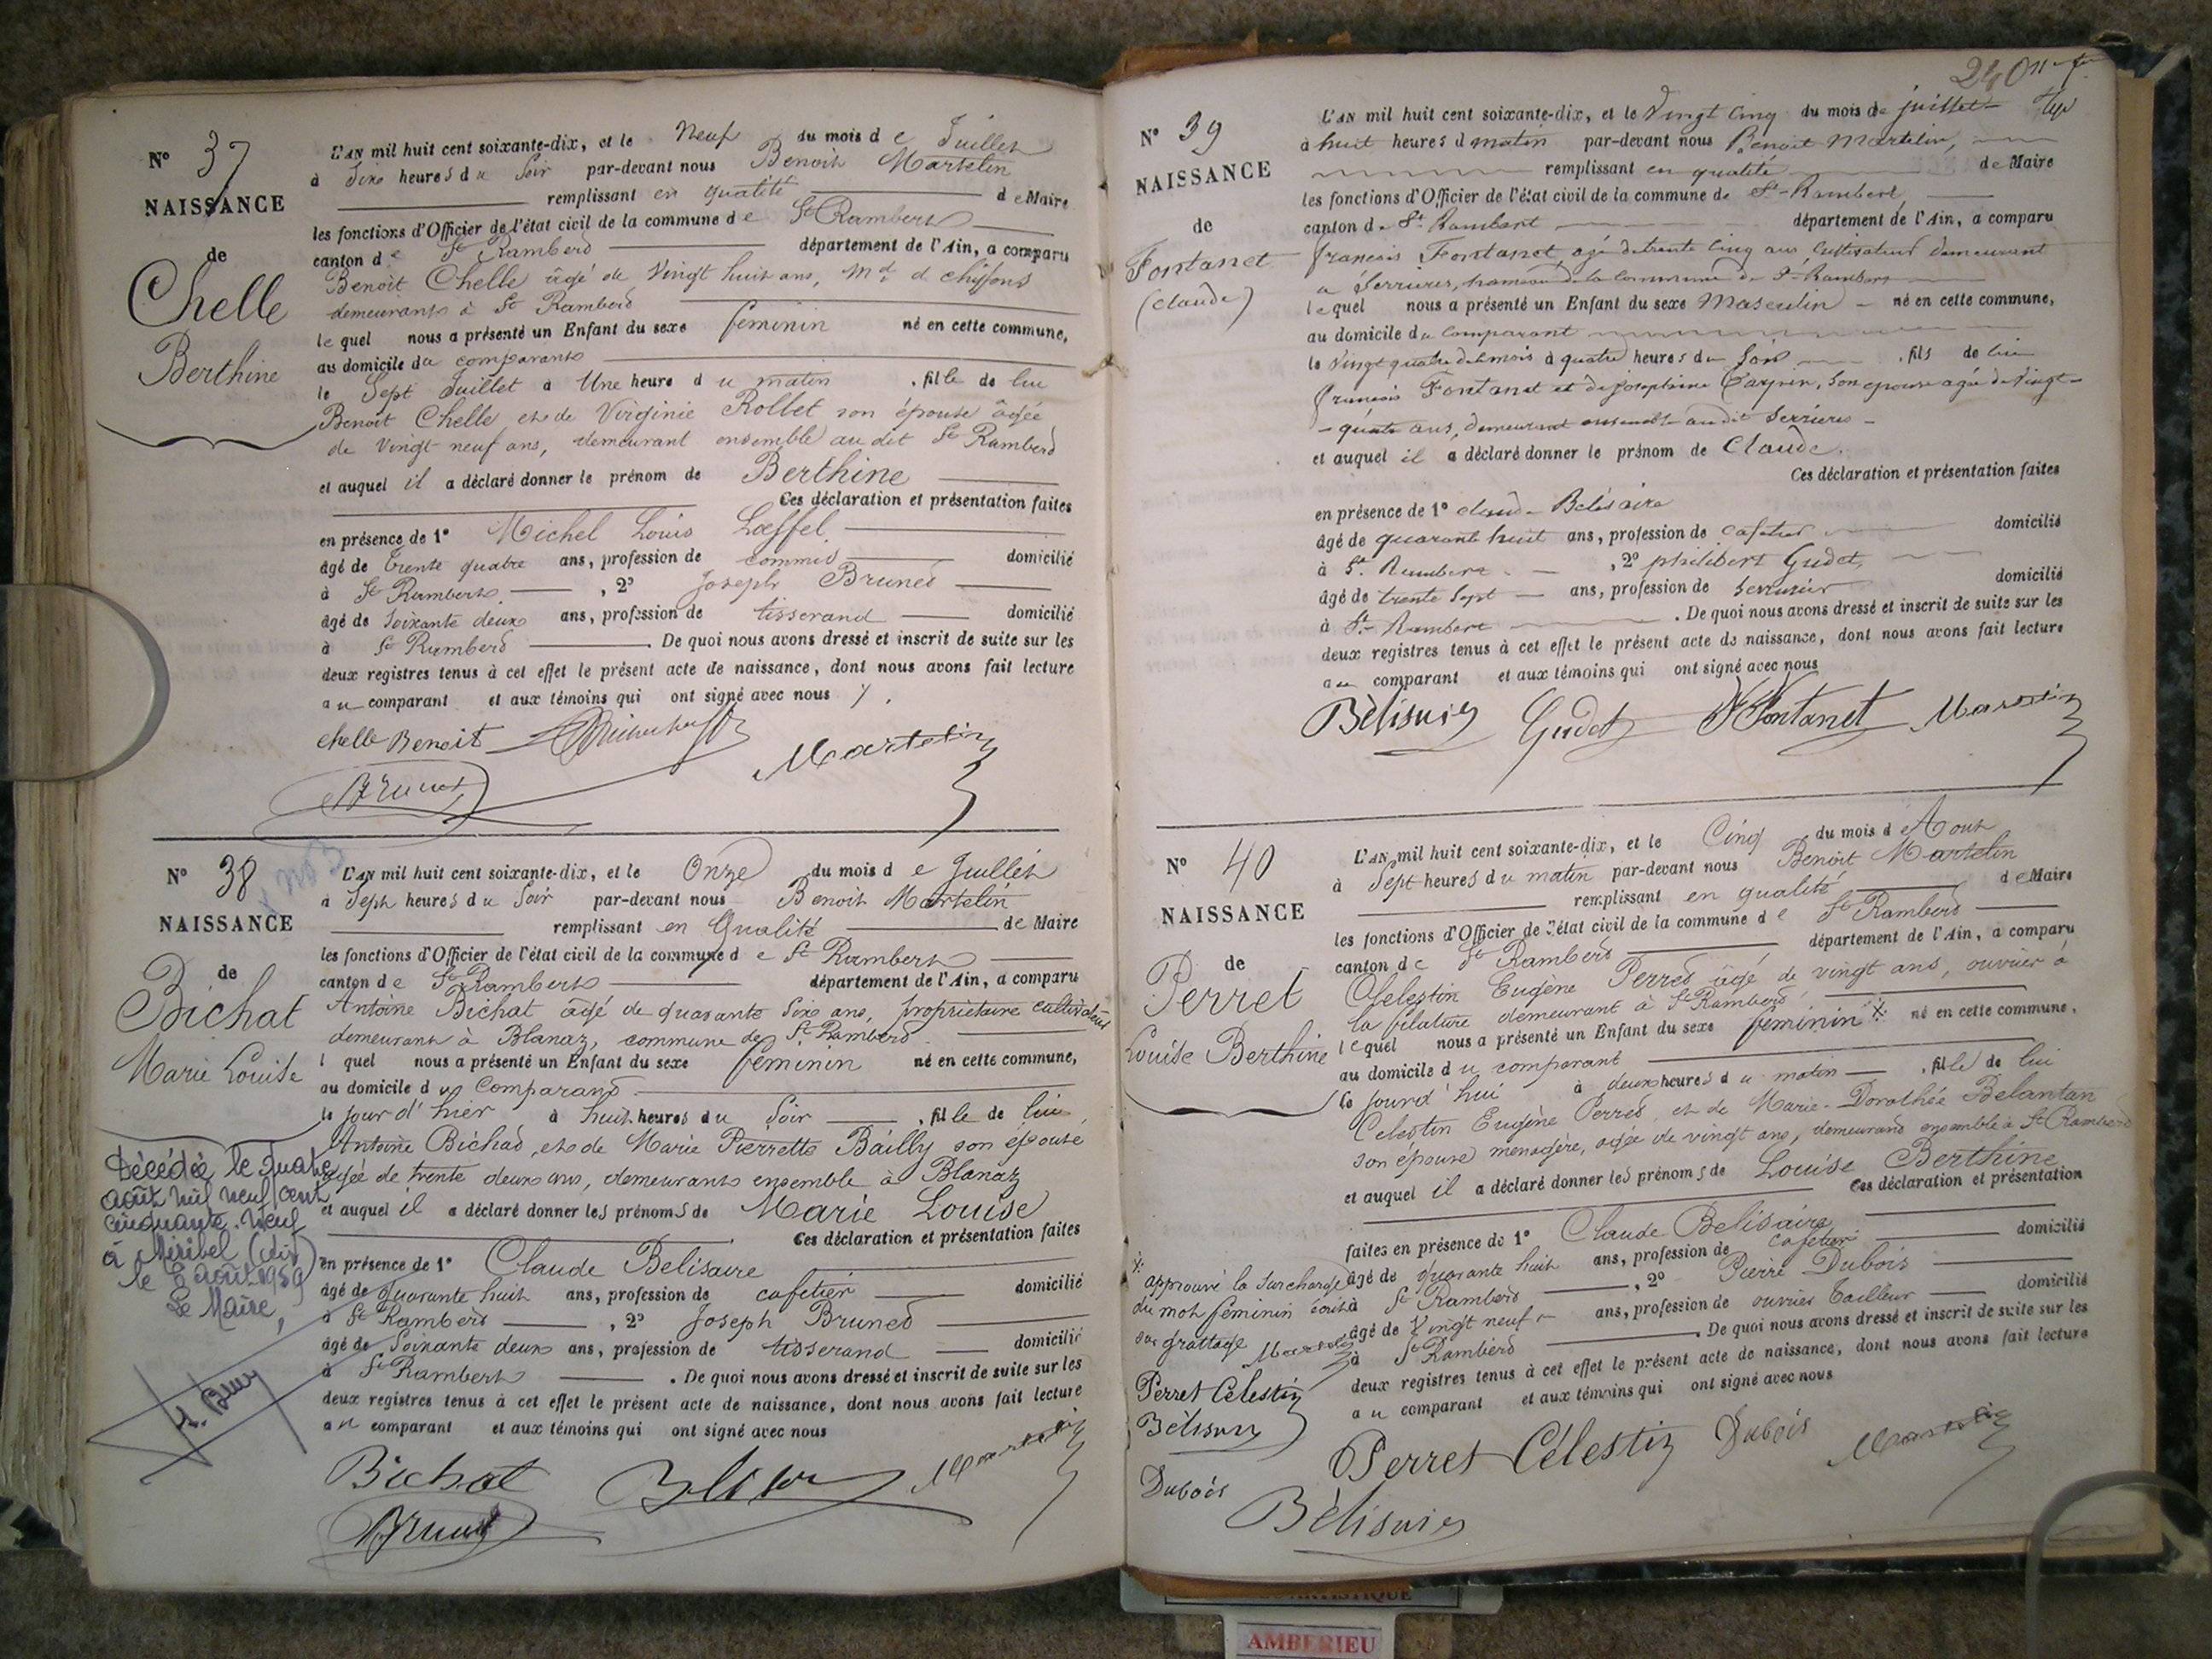 N° 37
NAISSANCE
de
Chelle
Berthine
L'AN mil huit cent soixante-dix, et le Neuf du mois de Juillet
à Six heures du Soir par-devant nous Benoit Martelin
remplissant en qualité de Maire
les fonctions d'Officier de l'état civil de la commune de St Rambert
canton de St Rambert département de l'Ain, a comparu
Benoit Chelle âgé de Vingt huit ans, Md de chiffons
demeurant à St Rambert
lequel nous a présenté un Enfant du sexe féminin né en cette commune,
au domicile du comparant
le Sept Juillet à Une heure du matin , fille de lui
Benoit Chelle et de Virginie Rollet son épouse âgée
de Vingt neuf ans, demeurant ensemble au dit St Rambert
et auquel il a déclaré donner le prénom de Berthine
Ces déclaration et présentation faites
en présence de 1° Michel Louis Lœffel
âgé de Trente quatre ans, profession de commis domicilié
à St Rambert , 2° Joseph Brunet
âgé de Soixante deux ans, profession de tisserand domicilié
à St Rambert . De quoi nous avons dressé et inscrit de suite sur les
deux registres tenus à cet effet le présent acte de naissance, dont nous avons fait lecture
au comparant et aux témoins qui ont signé avec nous
chelle Benoit
Martelin
Brunet
N° 38
NAISSANCE
de
Bichat
Marie Louise
L'AN mil huit cent soixante-dix, et le Onze du mois de Juillet
à Sept heures du Soir par-devant nous Benoit Martelin
remplissant en Qualité de Maire
les fonctions d'Officier de l'état civil de la commune de St Rambert
canton de St Rambert département de l'Ain, a comparu
Antoine Bichat âgé de quarante Six ans, propriétaire cultivateur
demeurant à Blanaz, commune de St Rambert
l quel nous a présenté un Enfant du sexe féminin né en cette commune,
au domicile du Comparant
le jour d'hier à huit heures du Soir , fille de lui
Antoine Bichat, et de Marie Pierrette Bailly son épouse
âgée de trente deux ans, demeurant ensemble à Blanaz
et auquel il a déclaré donner les prénoms de Marie Louise
Ces déclaration et présentation faites
en présence de 1° Claude Belisaire
âgé de Quarante huit ans, profession de cafetier domicilié
à St Rambert , 2° Joseph Brunet
âgé de Soixante deux ans, profession de tisserand domicilié
à St Rambert . De quoi nous avons dressé et inscrit de suite sur les
deux registres tenus à cet effet le présent acte de naissance, dont nous avons fait lecture
au comparant et aux témoins qui ont signé avec nous
Décédée le quatre
août mil neuf cent
cinquante-neuf
à Miribel (Ain)
le 6 août 1959
Le Maire,
Bichat
Martelin
Brunet
240
N° 39
NAISSANCE
de
Fontanet
(claude)
L'AN mil huit cent soixante-dix, et le Vingt cinq du mois de juillet
à huit heures d matin par-devant nous Benoit Martelin,
remplissant en qualité de Maire
les fonctions d'Officier de l'état civil de la commune de St-Rambert
canton de St Rambert département de l'Ain, a comparu
françois Fontanet, agé de trente cinq ans, Cultivateur demeurant
a Serrieres, hameau de la commune de St-Rambert
lequel nous a présenté un Enfant du sexe Masculin né en cette commune,
au domicile du Comparant
le Vingt quatre du mois à quatre heures du Soir , fils de lui
françois Fontanet et de josephine son epouse agée de Vingt-
-quatre ans, demeurant ensemble audit Serrieres-
et auquel il a déclaré donner le prénom de Claude.
Ces déclaration et présentation faites
en présence de 1° claude Belisaire
âgé de quarante huit ans, profession de cafetier domicilié
à St. Rambert , 2° philibert Gudet,
âgé de trente Sept ans, profession de Serrurier domicilié
à St-Rambert . De quoi nous avons dressé et inscrit de suite sur les
deux registres tenus à cet effet le présent acte de naissance, dont nous avons fait lecture
au comparant et aux témoins qui ont signé avec nous
Bélisaire Gudet Fontanet Martelin
N° 40
NAISSANCE
de
Perret
Louise Berthine
L'AN mil huit cent soixante-dix, et le Cinq du mois d'Aout
à Sept heures du matin par-devant nous Benoit Martelin
remplissant en qualité de Maire
les fonctions d'Officier de l'état civil de la commune de St Rambert
canton de St Rambert département de l'Ain, a comparu
Celestin Eugène Perret âgé de vingt ans, ouvrier à
la filature demeurant à St Rambert
lequel nous a présenté un Enfant du sexe féminin né en cette commune,
au domicile du comparant
le jourd'hui à deux heures du matin , fille de lui
Celestin Eugène Perret, et de Marie-Dorothée Belantan
son épouse menagère, agée de vingt ans, demeurant ensemble à St Rambert
et auquel il a déclaré donner les prénoms de Louise Berthine
Ces déclaration et présentation
faites en présence de 1° Claude Belisaire
âgé de Quarante huit ans, profession de cafetier domicilié
à St Rambert , 2° Pierre Dubois
âgé de Vingt neuf ans, profession de ouvrier Tailleur domicilié
à St Rambert . De quoi nous avons dressé et inscrit de suite sur les
deux registres tenus à cet effet le présent acte de naissance, dont nous avons fait lecture
au comparant et aux témoins qui ont signé avec nous
approuvé la surcharge
du mot féminin écrit
sur grattage
Martelin
Perret Célestin
Bélisaire
Dubois
Perret Célestin Dubois Martelin
Bélisaire
ARTISTIQUE
AMBERIEU